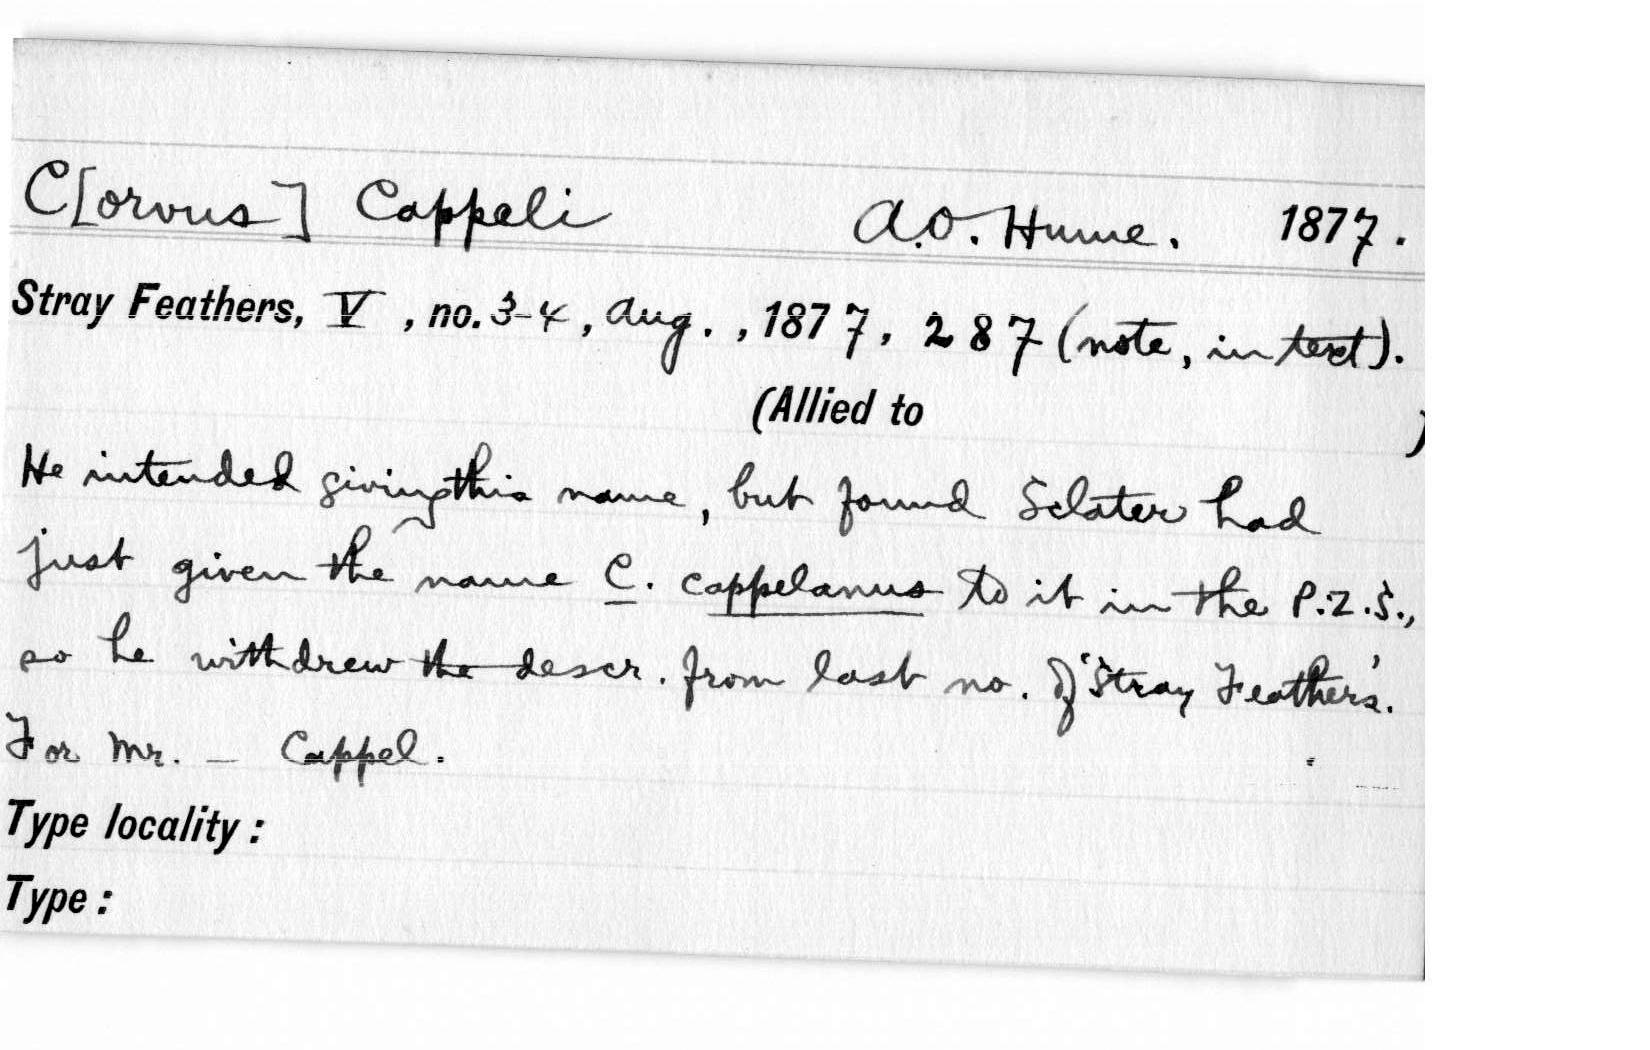 C[orvus] Cappeli A.O. Hume. 1877.
Stray Feathers, V, no. 3-4, Aug., 1877, 287 (note, in text).
(Allied to )
He intended giving this name, but found Sclater had
just given the name C. cappelanus to it in the P.Z.S.,
so he withdrew the descr. from last no. of 'Stray Feathers'.
For Mr. — Cappel.
Type locality:
Type: